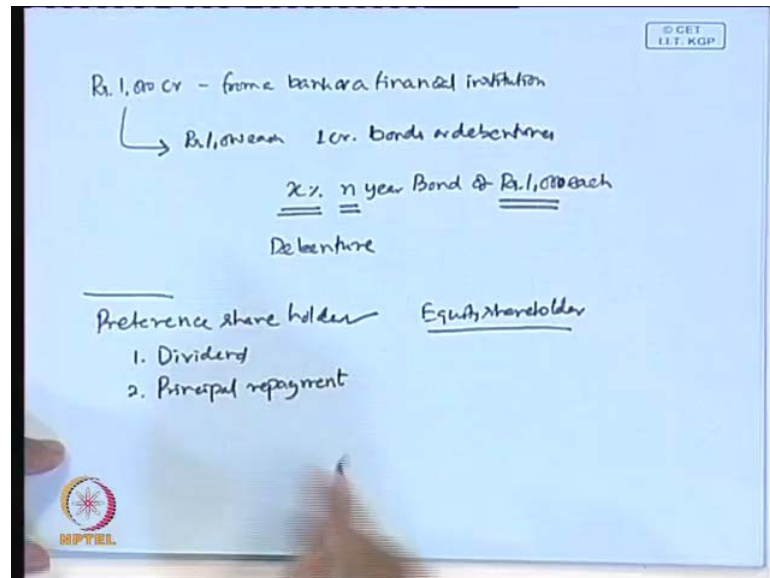 © CET
I.I.T. KGP
Rs. 1,000 cr - from a bank or a financial institution
Rs 1,000 each 1 cr. bonds or debentures
x% n year Bond of Rs. 1,000 each
Debenture
Preference share holder Equity shareholder
1. Dividend
2. Principal repayment
NPTEL